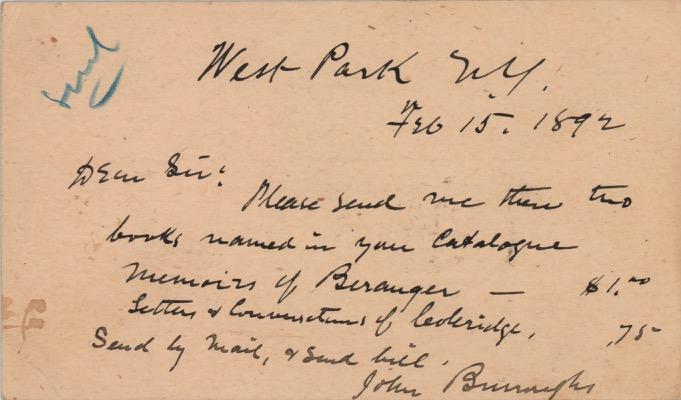 West Park N.Y.
Feb 15. 1892
Dear Sir:
Please send me these two
books named in your Catalogue
Memoirs of Beranger — $1.00
Letters & Conversations of Coleridge, .75
Send by mail, & send bill.
John Burroughs